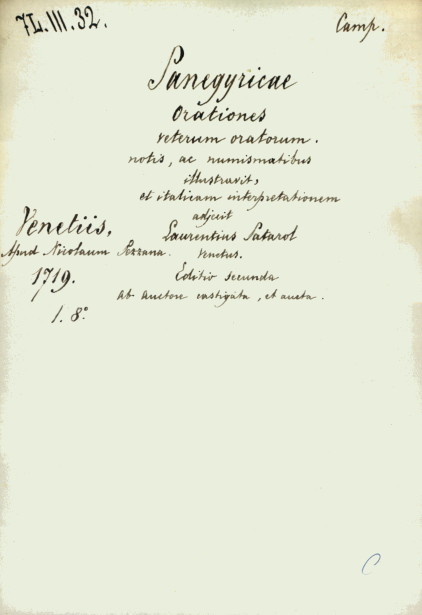 7L.III.32.
Camp.
Panegyricae
Orationes
veterum oratorum.
notis, ac numismatibus
illustravit,
et italicam interpretationem
adjecit
Laurentius Patarol
Venetus.
Venetiis,
Apud Nicolaum Pezzana.
1719.
1. 8º
Editio secunda
Ab Auctore castigata, et aucta.
C